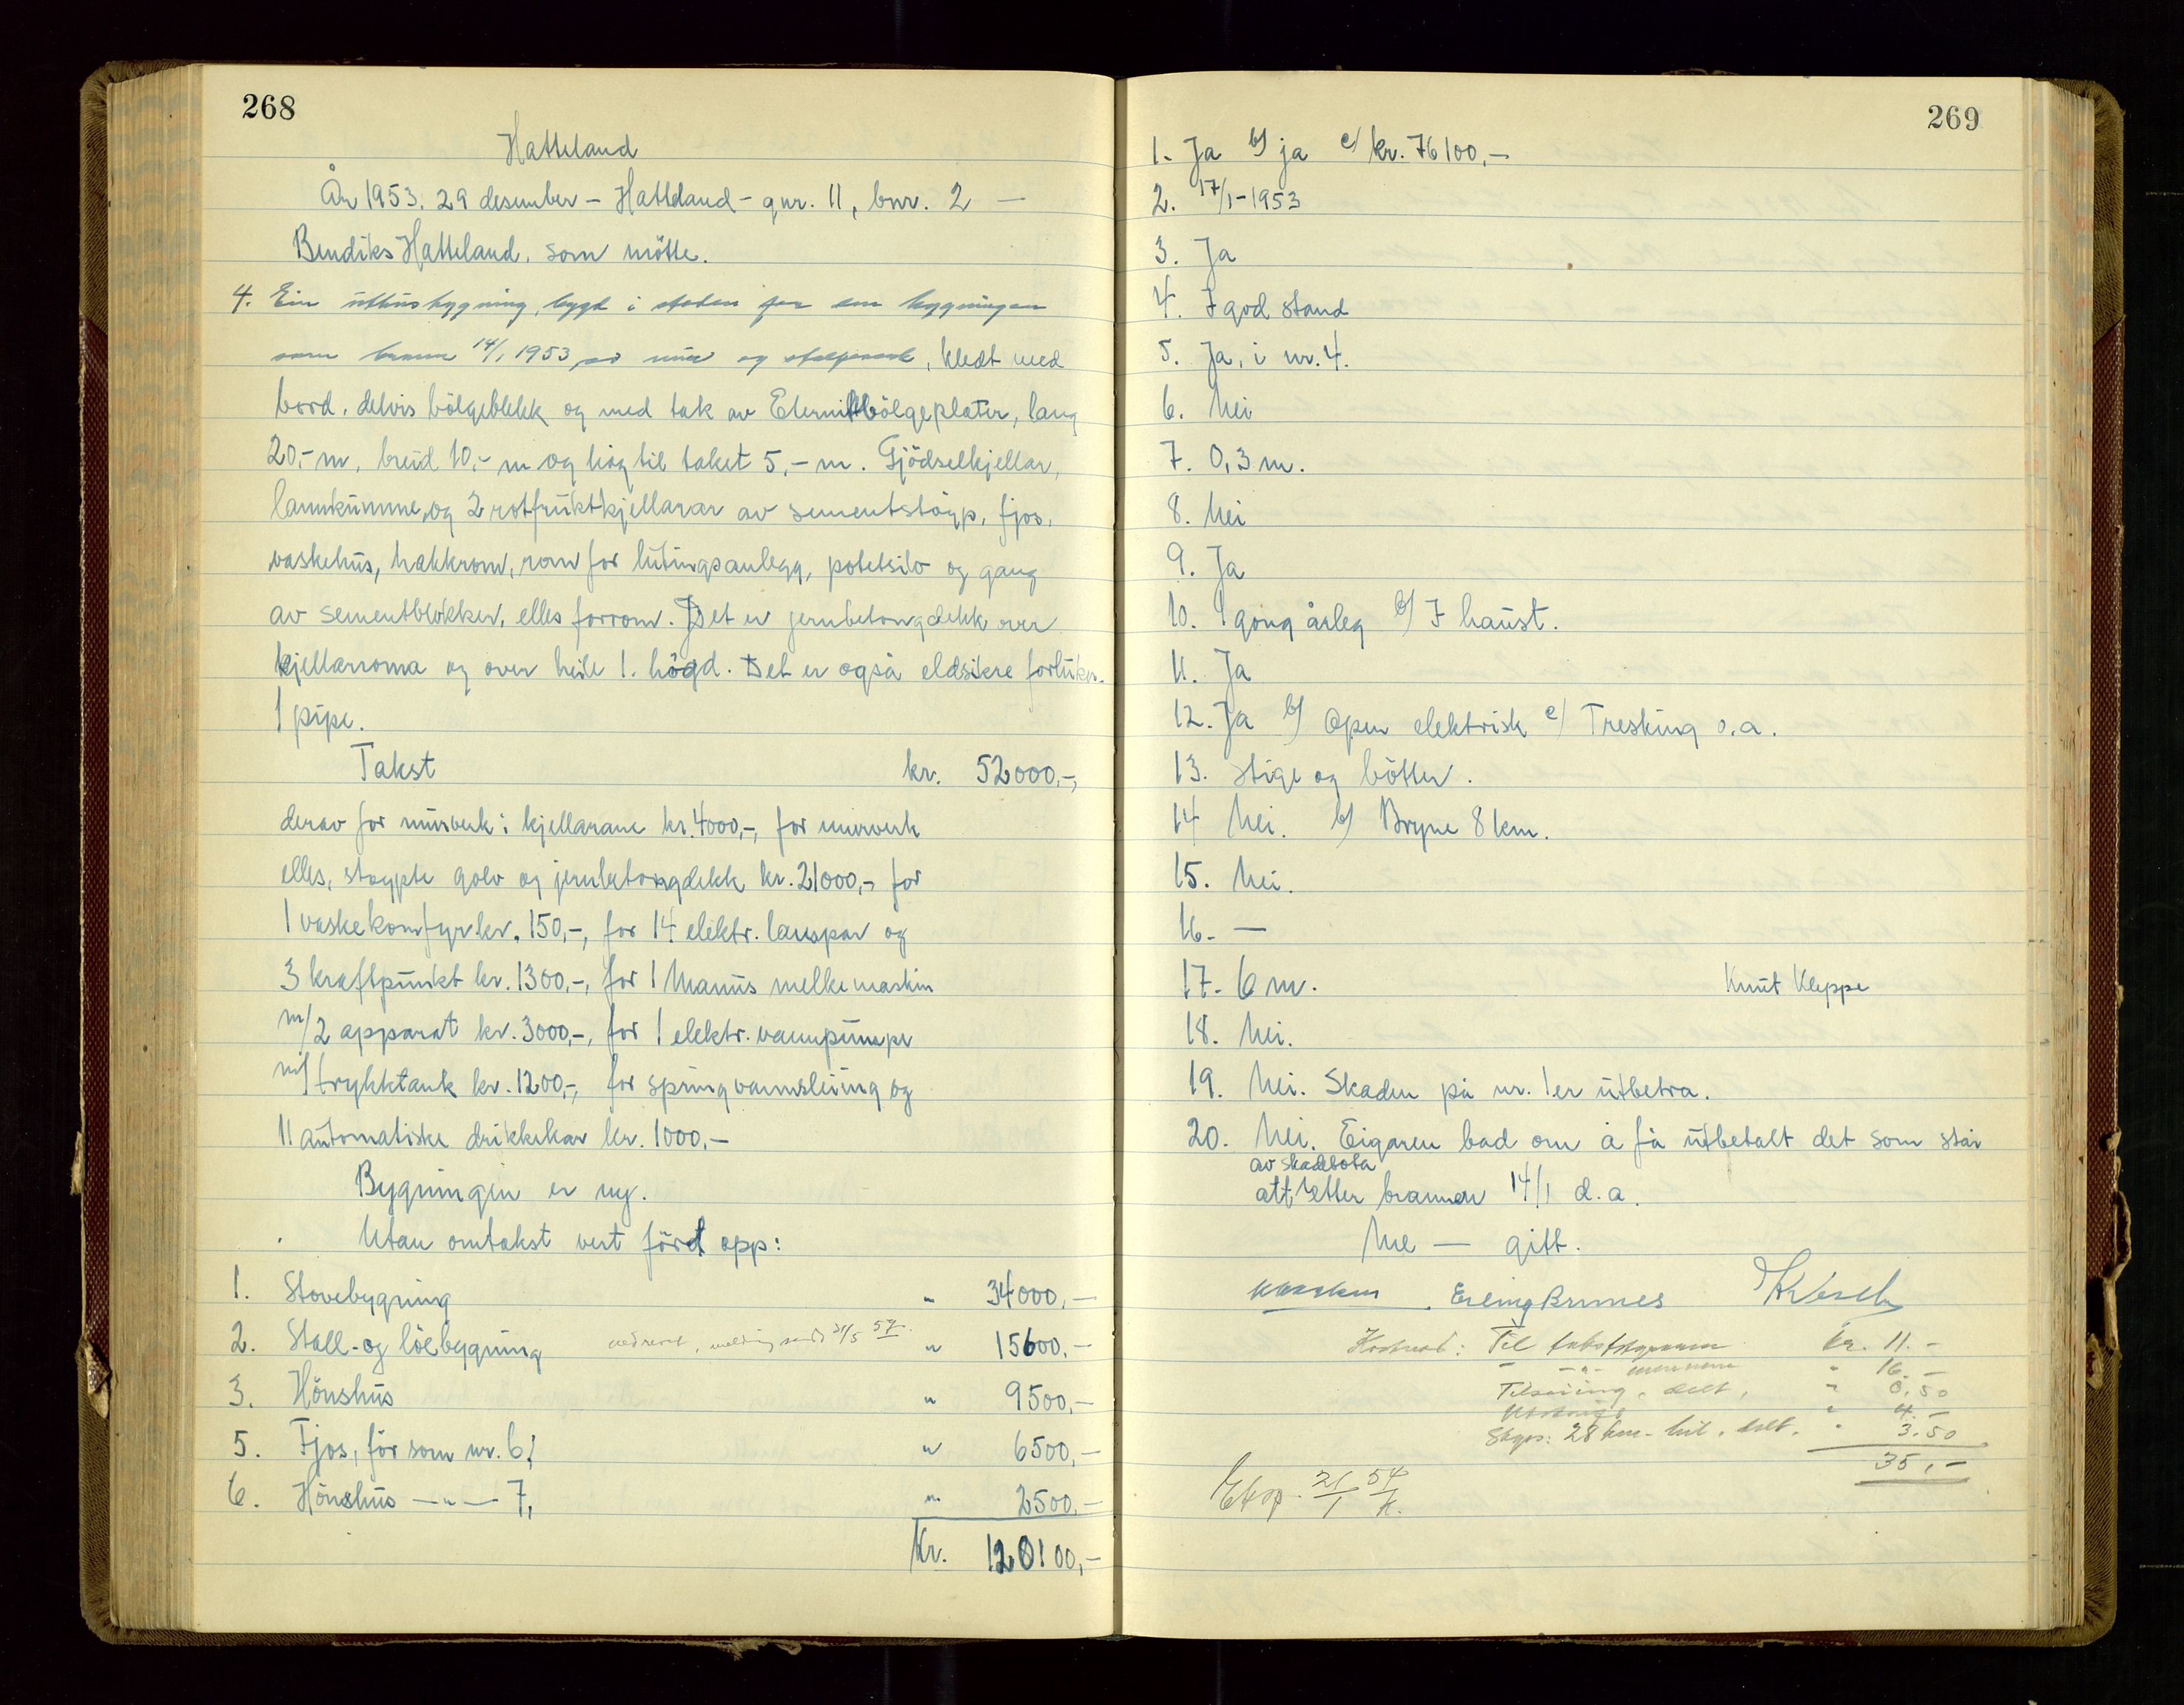 268
Hatteland
År 1953. 29 desember – Hatteland – gnr. 11, bnr. 2 —
Bendiks Hatteland, som møtte.
4. Ein uthusbygning, bygt i staden for em bygningen
som brann 14/1 1953 av mur og stolpeverk, kledt med
bord, delvis bölgeblekk og med tak av Eternitbölgeplater, lang
20,- m, breid 10,- m og høg til taket 5,- m. Gjödselkjellar,
lannkumme og 2 rotfruktkjellarar av sementstöyp, fjos,
vaskehus, hakkrom, rom for lutingsanlegg, potetsilo og gang
av sementblokker, elles forrom. Det er jernbetongdekk over
kjellarroma og over heile 1. högd. Det er også eldsikre forluker.
1 pipe.
Takst kr. 52000,-,
derav for murverk i kjellarane kr. 4000,-, for murverk
elles, støypte golv og jernbetongdekk kr. 21000,-, for
1 vaskekomfyr kr. 150,-, for 14 elektr. lampar og
3 kraftpunkt kr. 1300,-, for 1 Manus melkemaskin
m/2 apparat kr. 3000,-, for 1 elektr. vannpumpe
m/trykktank kr. 1200,-, for springvannsleiing og
11 automatiske drikkekar kr. 1000,-
Bygningen er ny.
Utan omtakst vert fört opp:
1. Stovebygning " 34000,-
2. Stall- og löebygning nedrevet, melding sendt 31/5 57. " 15600,-
3. Hönshus " 9500,-
5. Fjos, för som nr. 6, " 6500,-
6. Hönshus —"— 7, " 2500,-
Kr. 120100,-
269
1. Ja b/ ja c/ kr. 76100,-
2. 17/1-1953
3. Ja
4. I god stand
5. Ja, i nr. 4.
6. Nei
7. 0,3 m.
8. Nei
9. Ja
10. 1 gong årleg b/ I haust.
11. Ja
12. Ja b/ Open elektrisk c/ Tresking o.a.
13. Stige og bötter.
14 Nei. b/ Bryne 8 km.
15. Nei.
16. —
17. 6 m. Knut Kleppe
18. Nei.
19. Nei. Skaden på nr. 1 er utbetra.
20. Nei. Eigaren bad om å få utbetalt det som står
av skadebota
att etter brannen 14/1 d.a.
Me — gitt.
Erling Brunes
Kostnad: Til takstmennene kr. 11.-
— " — " 16.-
Tilseiing, delt, " 0,50
" 4.-
Skyss: 28 km. bil, delt. " 3.50
35,-
Eksp. 21/1 54